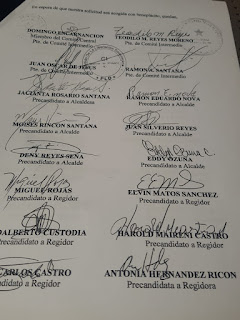 La espera de que nuestra solicitud sea acogida con
DOMINGO ENCARNACION
Pte. de Comité Intermedio
TEODILO M. REYES MORENO
Pte. de Comité Intermedio
JUAN OSCAR DE JESUS
Pte. de Comité Intermedio
RAMON A. SANTANA
Pte. de Comité Intermedio
JACINTA ROSARIO SANTANA
Precandidato a Alcalde
RAMON EDUARDO NOVA
Precandidato a Alcalde
MOISES RINCON SANTANA
Precandidato a Alcalde
JUAN SILVERIO REYES
Precandidato a Alcalde
DENY REYES SENA
Precandidato a Alcalde
EDDY OZUNA
Precandidato a Alcalde
MIGUEL ROJAS
Precandidato a Regidor
ELVIN MATOS SANCHEZ
Precandidato a Regidor
ADALBERTO CUSTODIA
Precandidato a Regidor
HAROLD MAIRENI CASTRO
Precandidato a Regidor
CARLOS CASTRO
Precandidato a Regidor
ANTONIA HERNANDEZ RICON
Precandidato a Regidora